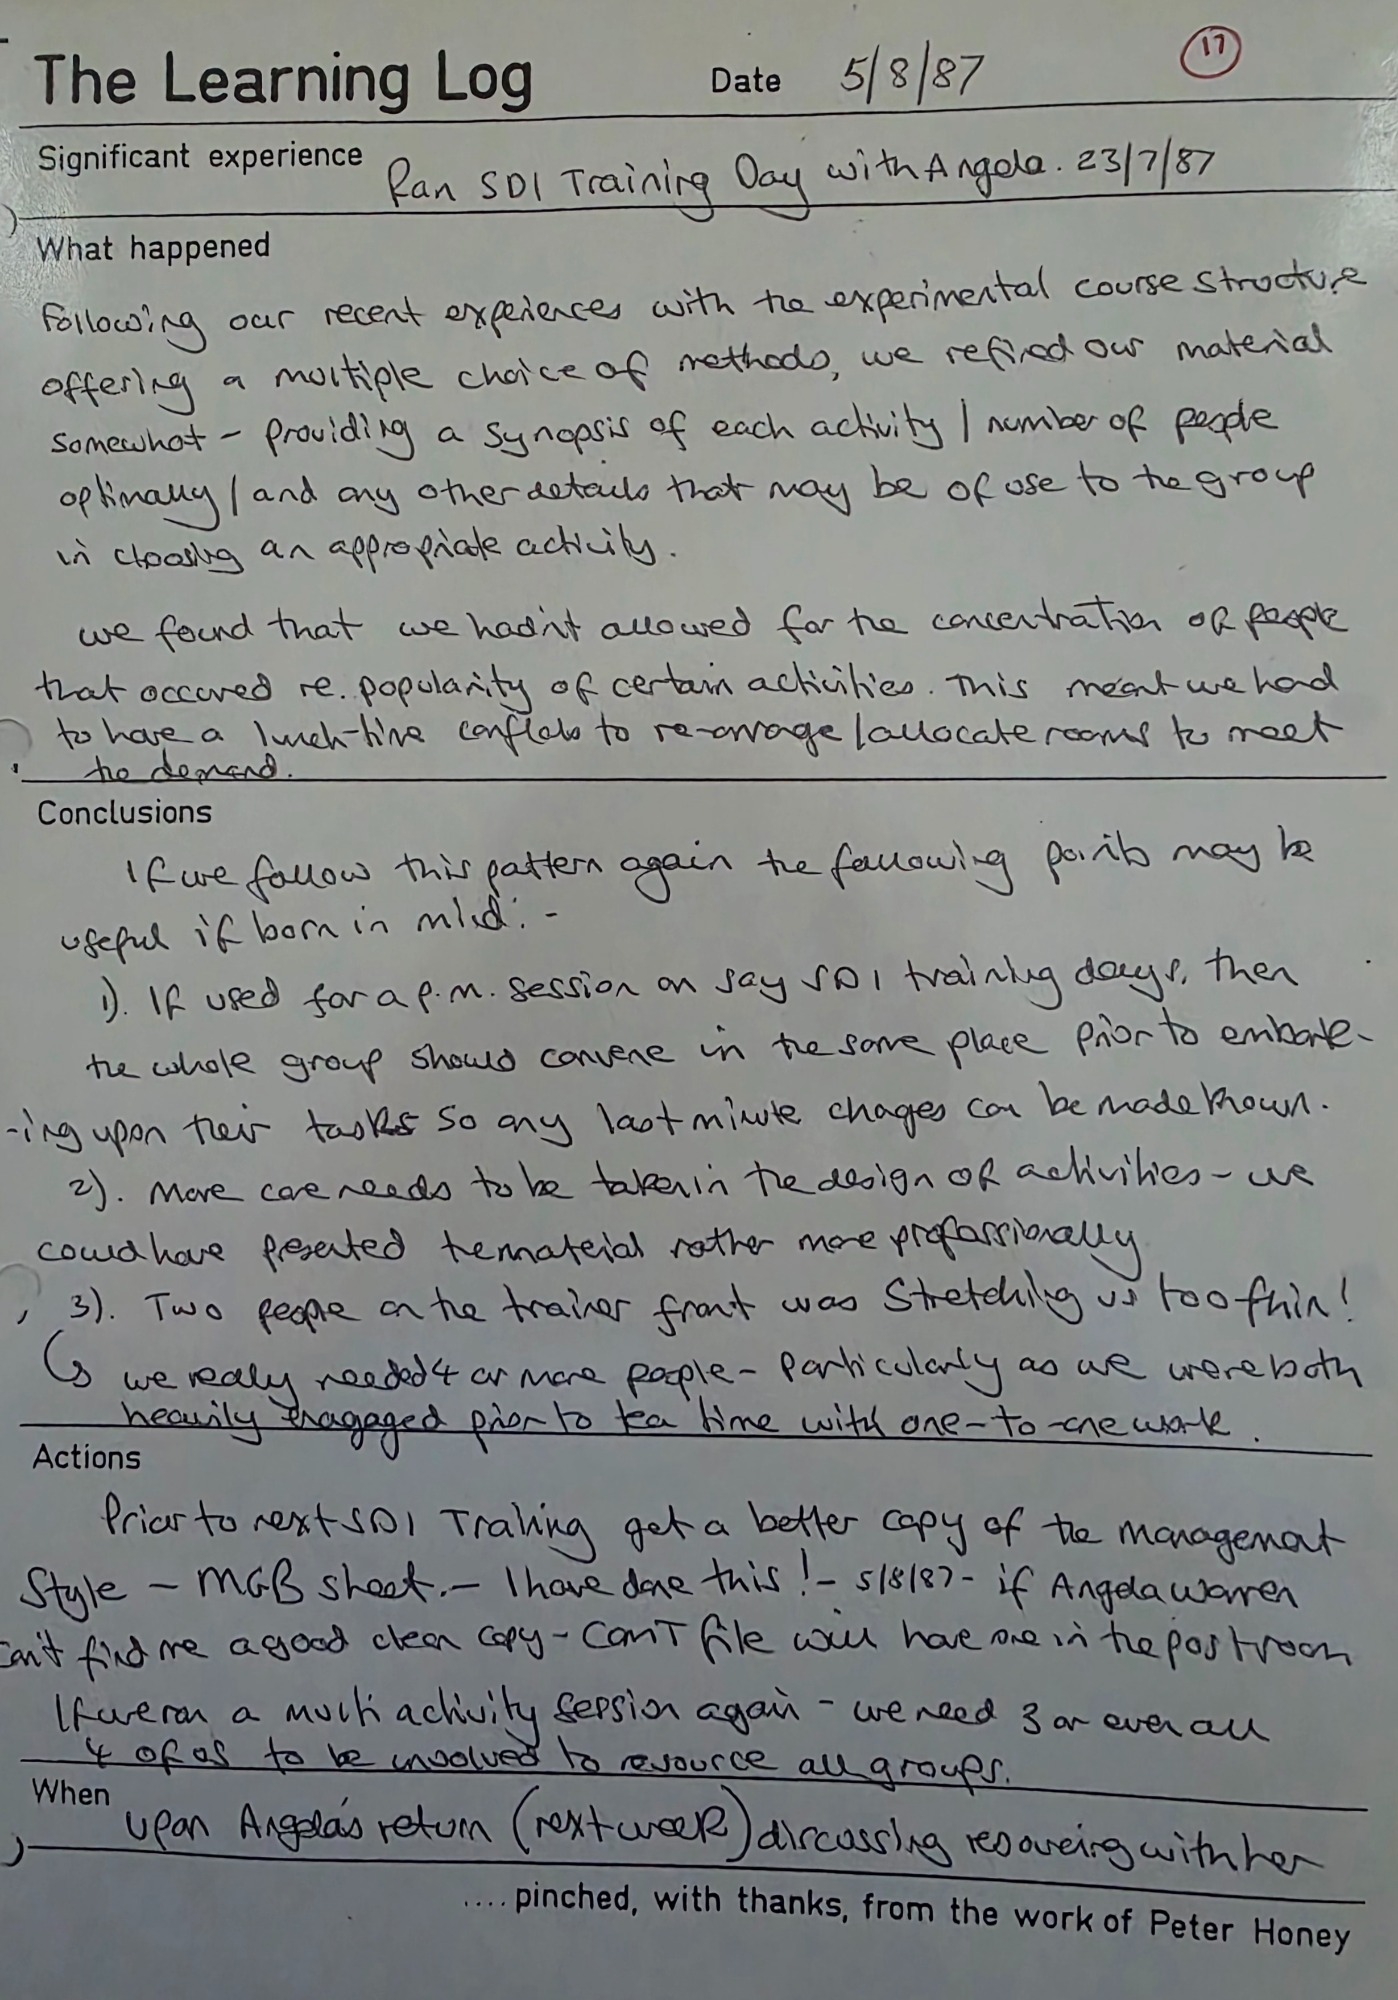 The Learning Log Date 5/8/87 17
Significant experience Ran SDI Training Day with Angela. 23/7/87
What happened
Following our recent experiences with the experimental course structure
offering a multiple choice of methods, we refined our material
somewhat - providing a synopsis of each activity / number of people
optimally / and any other details that may be of use to the group
in choosing an appropriate activity.
we found that we hadn't allowed for the concentration of people
that occured re. popularity of certain activities. This meant we had
to have a lunch-time conflab to re-arrange / allocate rooms to meet
the demand.
Conclusions
If we follow this pattern again the following points may be
useful if born in mind: -
1). If used for a p.m. session on say SDI training days, then
the whole group should convene in the same place prior to embark-
-ing upon their tasks so any last minute chages can be made known.
2). More care needs to be taken in the design of activities - we
could have presented the material rather more professionally
3). Two people on the trainer front was stretching us too thin!
we really needed 4 or more people - particularly as we were both
heavily engaged prior to tea time with one-to-one work.
Actions
Prior to next SDI Training get a better copy of the management
Style - MGB sheet. - I have done this! - 5/8/87 - if Angela Warren
can't find me a good clean copy - Con T file will have one in the post room
If we ran a multi activity session again - we need 3 or even all
4 of us to be involved to resource all groups.
When upon Angela's return (next week) discussing resourcing with her
.... pinched, with thanks, from the work of Peter Honey